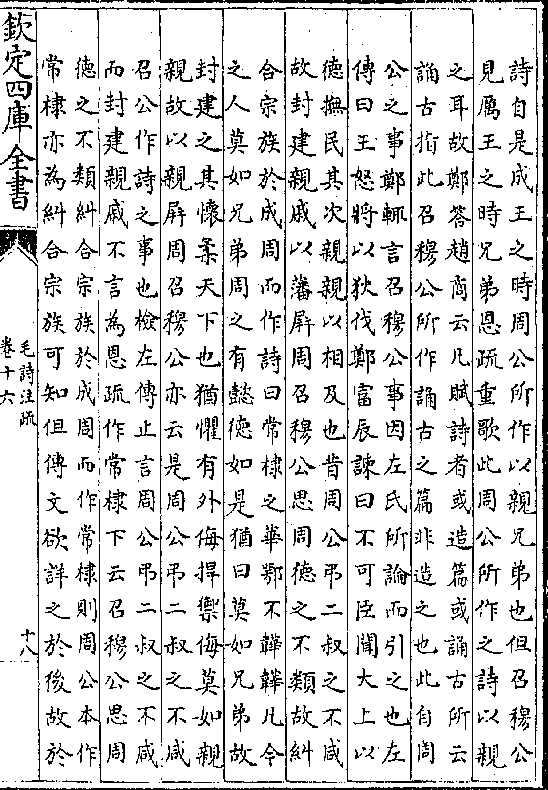 詩自是成王之時周公所作以親兄弟也但召穆公
見厲王之時兄弟恩疏重歌此周公所作之詩以親
之耳故鄭答趙商云凡賦詩者或造篇或誦古所云
誦古指此召穆公所作誦古之篇非造之也此自周
公之事鄭輒言召穆公事因左氏所論而引之也左
傳曰王怒將以狄伐鄭富辰諫曰不可臣聞大上以
德撫民其次親親以相及也昔周公弔二叔之不咸
故封建親戚以藩屏周召穆公思周德之不類故糾
合宗族於成周而作詩曰常棣之華鄂不韡韡凡今
之人莫如兄弟周之有懿德如是猶曰莫如兄弟故
封建之其懷柔天下也猶懼有外侮捍禦侮莫如親
親故以親屏周召穆公亦云是周公弔二叔之不咸
召公作詩之事也檢左傳止言周公弔二叔之不咸
而封建親戚不言為恩疏作常棣下云召穆公思周
德之不類糾合宗族於成周而作常棣則周公本作
常棣亦為糾合宗族可知但傳文欲詳之於後故於
欽定四庫全書
毛詩注疏
卷十六
十八